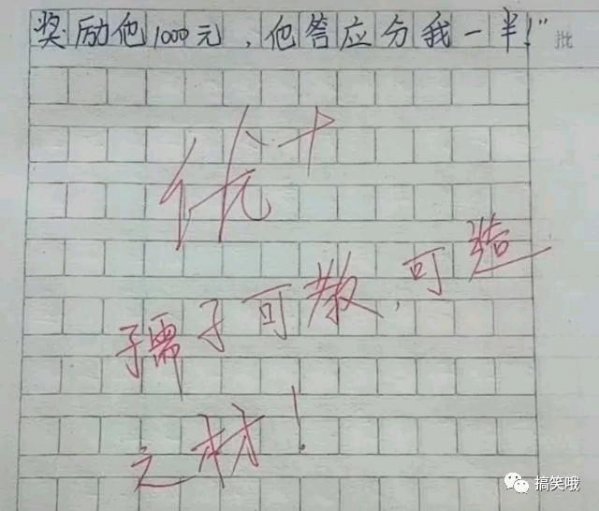 奖励他1000元，他答应分我一半！”
批
优+
孺子可教，可造
之材！
搞笑哦